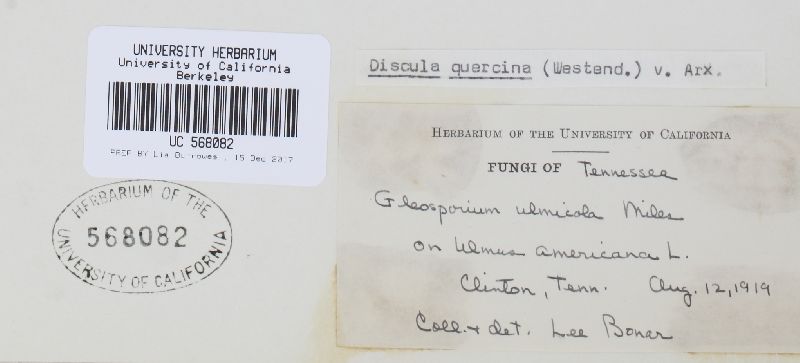 UNIVERSITY HERBARIUM
University of California
Berkeley
UC 568082
PREP BY Lia Burrowes , 15 Dec 2017
HERBARIUM OF THE
568082
UNIVERSITY OF CALIFORNIA
Discula quercina (Westend.) v. Arx.
HERBARIUM OF THE UNIVERSITY OF CALIFORNIA
FUNGI OF Tennessee
Gleosporium ulmicola Miles
on Ulmus americana L.
Clinton, Tenn. Aug. 12, 1919
Coll. + det. Lee Bonar